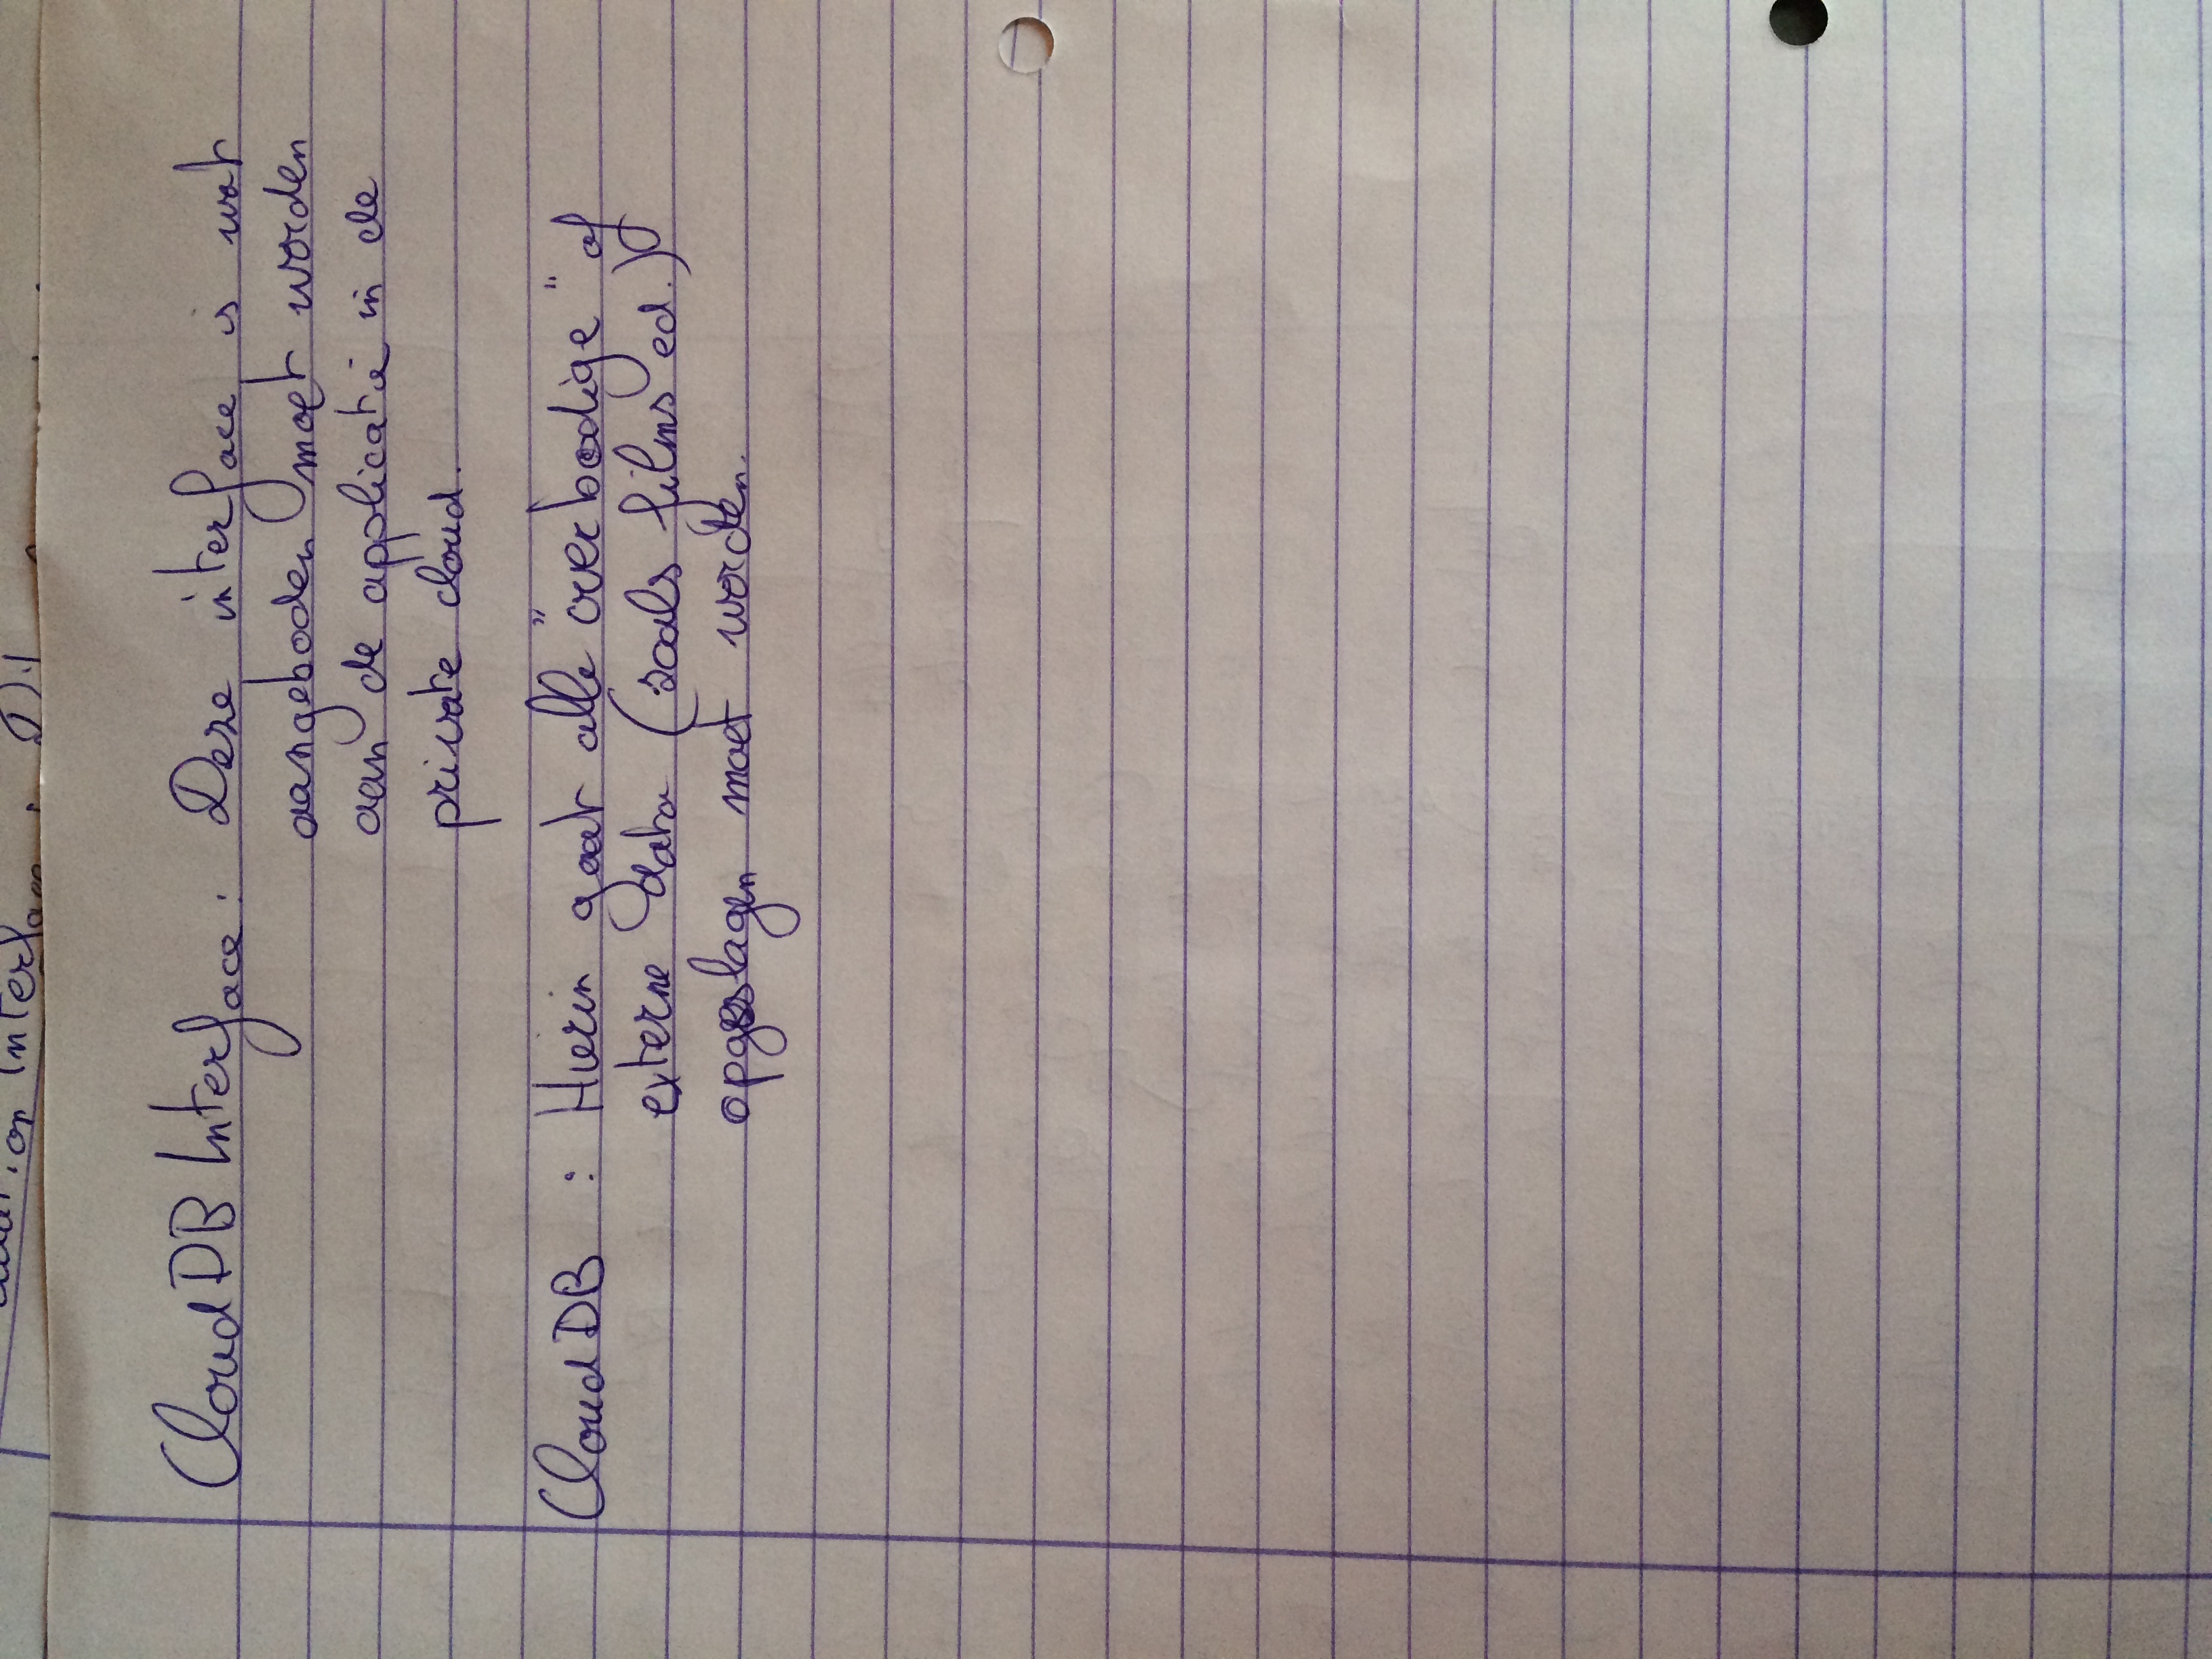 Interface :
CloudDB Interface : Deze interface is wat
aangeboden moet worden
aan de applicatie in de
private cloud.
CloudDB : Hierin gaat alle "overbodige" of
externe data (zoals films ed.)
opgeslagen moet worden.